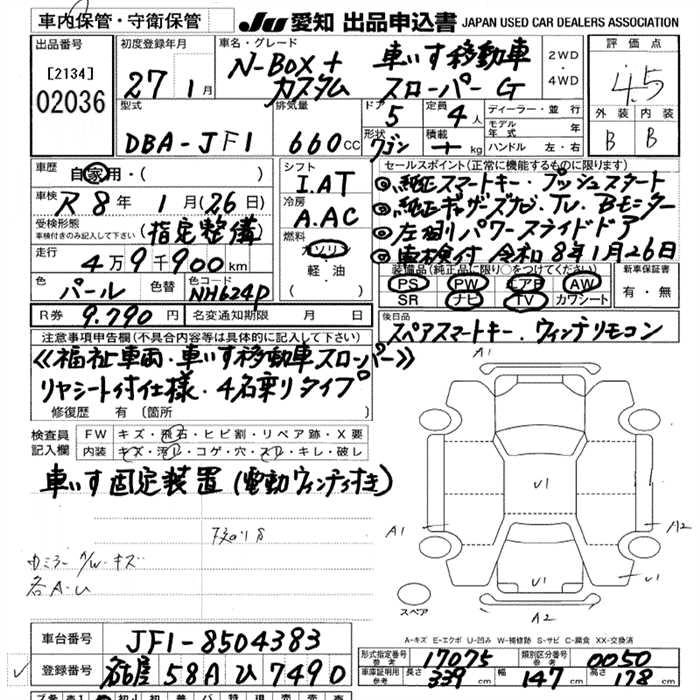 車内保管・守衛保管
JU 愛知 出品申込書 JAPAN USED CAR DEALERS ASSOCIATION
出品番号
[2134]
02036
初度登録年月
27年 1月
車名・グレード
N-BOX+ 車いす移動車
カスタム スローパー G
2WD
4WD
評価点
4.5
外装 内装
B B
型式
DBA-JF1
排気量
660cc
ドア
5
定員
4人
形状
ワゴン
積載
kg
ディーラー・並行
モデル年式 年
ハンドル 左・右
車歴
自家用・( )
車検
R8年 1月(26日)
受検形態
車検付きのみ記入して下さい
(指定整備)
走行
4万9千900km
色
パール
色替
色コード
NH624P
シフト
I.AT
冷房
A.AC
燃料
ガソリン
・
軽油
( )
セールスポイント(正常に機能するものに限ります)
◎純正スマートキー・プッシュスタート
◎純正ギャザズナビ.TV.Bモニター
◎左側パワースライドドア
◎車検付 令和8年1月26日
装備品(純正品に限り○をつけてください)
PS PW エアB AW
SR ナビ TV カワシート
新車保証書
有・無
R券 9.790円
名変通知期限 月 日
後日品
スペアスマートキー.ウィンチリモコン
注意事項申告欄(不具合内容等は具体的に記入して下さい)
《福祉車両・車いす移動車スローパー》
リヤシート付仕様・4名乗りタイプ
修復歴 有(箇所
検査員
記入欄
FW キズ・飛石・ヒビ割・リペア跡・X要
内装 キズ・汚レ・コゲ・穴・スレ・キレ・破レ
車いす固定装置(電動ウィンチ付き)
カミラー A/W・キズ
各A-U
A1
U1
A1
A2
U1
U1
A2
スペア
A-キズ E-エクボ U-凹み W-補修跡 S-サビ C-腐食 XX-交換済
車台番号 JF1-8504383
登録番号 名古屋 58A ひ 7490
形式指定番号 参考 17075
類別区分番号 参考 0050
車庫証明用 参考 長さ 339cm 幅 147cm 高さ 178cm